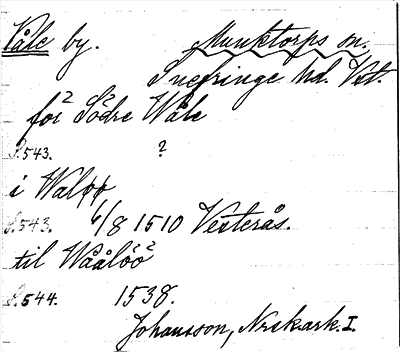 Våle by. Munktorps sn.
Snefringe hd. Vst.
for² Södre Wåle
S. 543. ?
i Waløø
S. 543. 6/8 1510 Vesterås.
til Wåålöö²
S. 544. 1538.
Johansson, Nrskark. I.